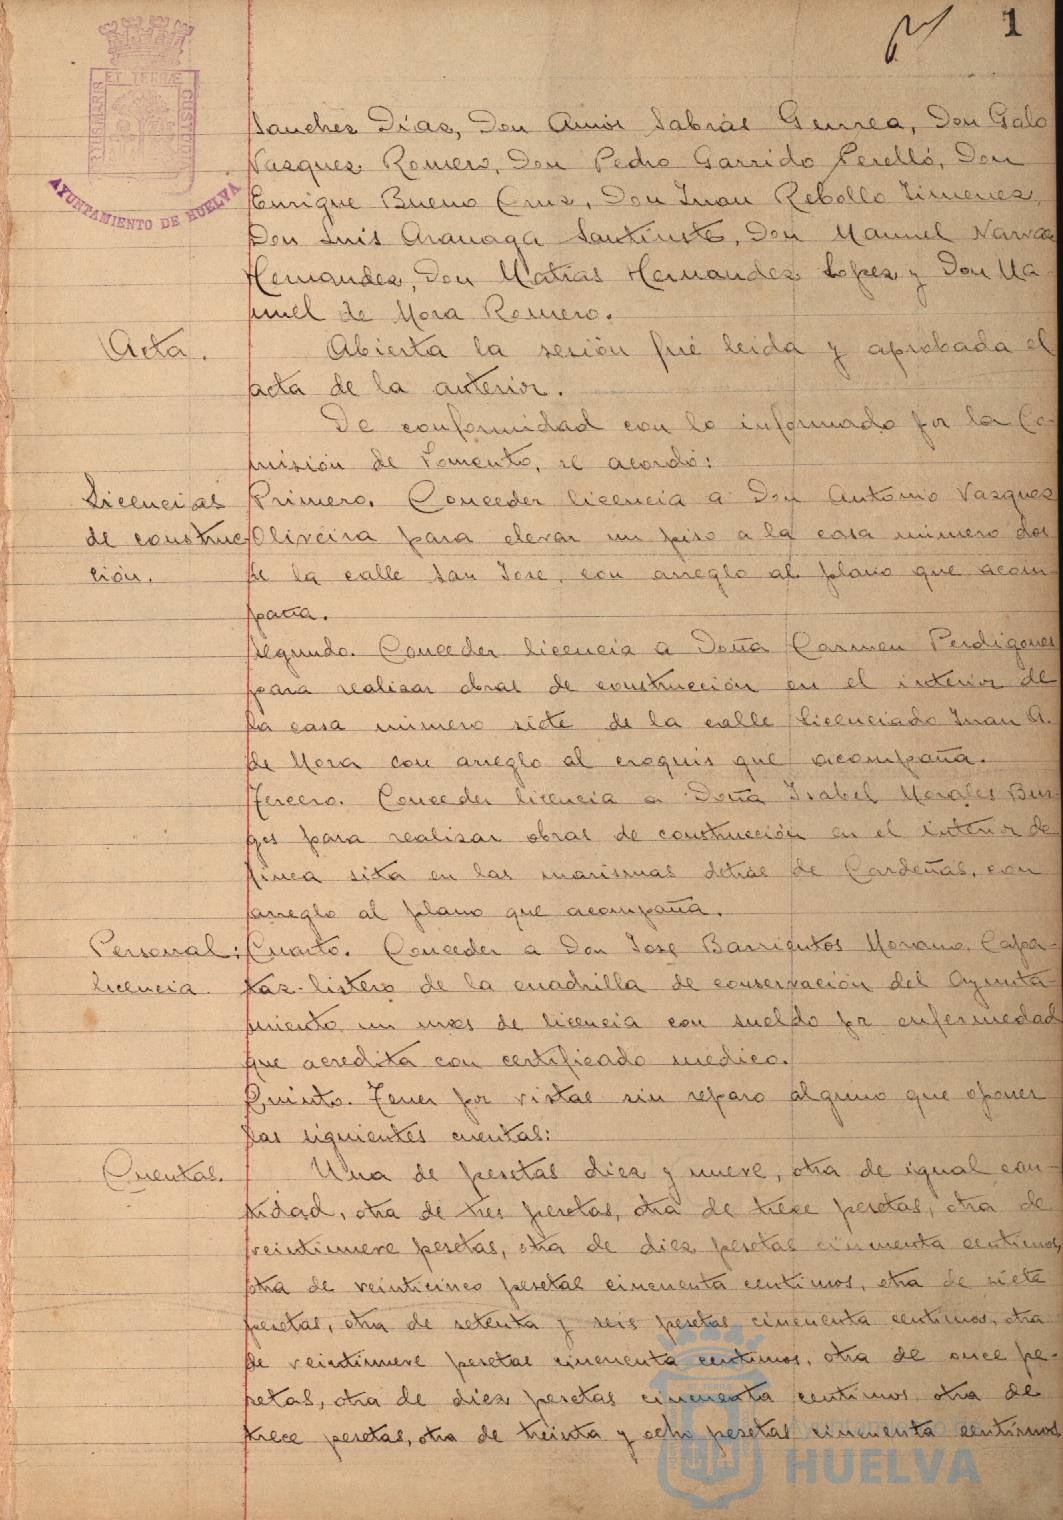 1
PORTUS MARIS
ET TERRÆ
CUSTODIA
AYUNTAMIENTO DE HUELVA
Sanchez Díaz, Don Amós Sabrás Gurrea, Don Galo
Vazquez Romero, Don Pedro Garrido Perelló, Don
Enrique Bueno Cruz, Don Juan Rebollo Jimenez,
Don Luis Aranaga Santiuste, Don Manuel Narvaez
Hernandez, Don Matias Hernandez Lopez y Don Ma
nuel de Mora Romero.
Acta.
Abierta la sesión fué leida y aprobada el
acta de la anterior.
De conformidad con lo informado por la Co-
misión de Fomento, se acordó:
Licencias
de construc
ción.
Primero. Conceder licencia a Don Antonio Vazquez
Oliveira para elevar un piso a la casa número dos
de la calle San Jose, con arreglo al plano que acom-
paña.
Segundo. Conceder licencia a Doña Carmen Perdigones
para realizar obras de construcción en el interior de
la casa número siete de la calle Licenciado Juan A.
de Mora con arreglo al croquis que acompaña.
Tercero. Conceder licencia a Doña Isabel Morales Bur-
gos para realizar obras de construcción en el interior de
finca sita en las marismas detrás de Cardeñas, con
arreglo al plano que acompaña.
Personal:
licencia
Cuarto. Conceder a Don Jose Barrientos Morano, Capa-
taz-listero de la cuadrilla de conservación del Ayunta
miento, un mes de licencia con sueldo pr enfermedad
que acredita con certificado médico.
Quinto. Tener por vistas sin reparo alguno que oponer
las siguientes cuentas:
Cuentas.
Una de pesetas diez y nueve, otra de igual can-
tidad, otra de tres pesetas, otra de trece pesetas, otra de
veintinueve pesetas, otra de diez pesetas cincuenta centimos,
otra de veinticinco pesetas cincuenta centimos, otra de siete
pesetas, otra de setenta y seis pesetas cincuenta centimos, otra
de veintinueve pesetas cincuenta centimos, otra de once pe-
setas, otra de diez pesetas cincuenta centimos, otra de
trece pesetas, otra de treinta y ocho pesetas cincuenta centimos
Ayuntamiento de
HUELVA